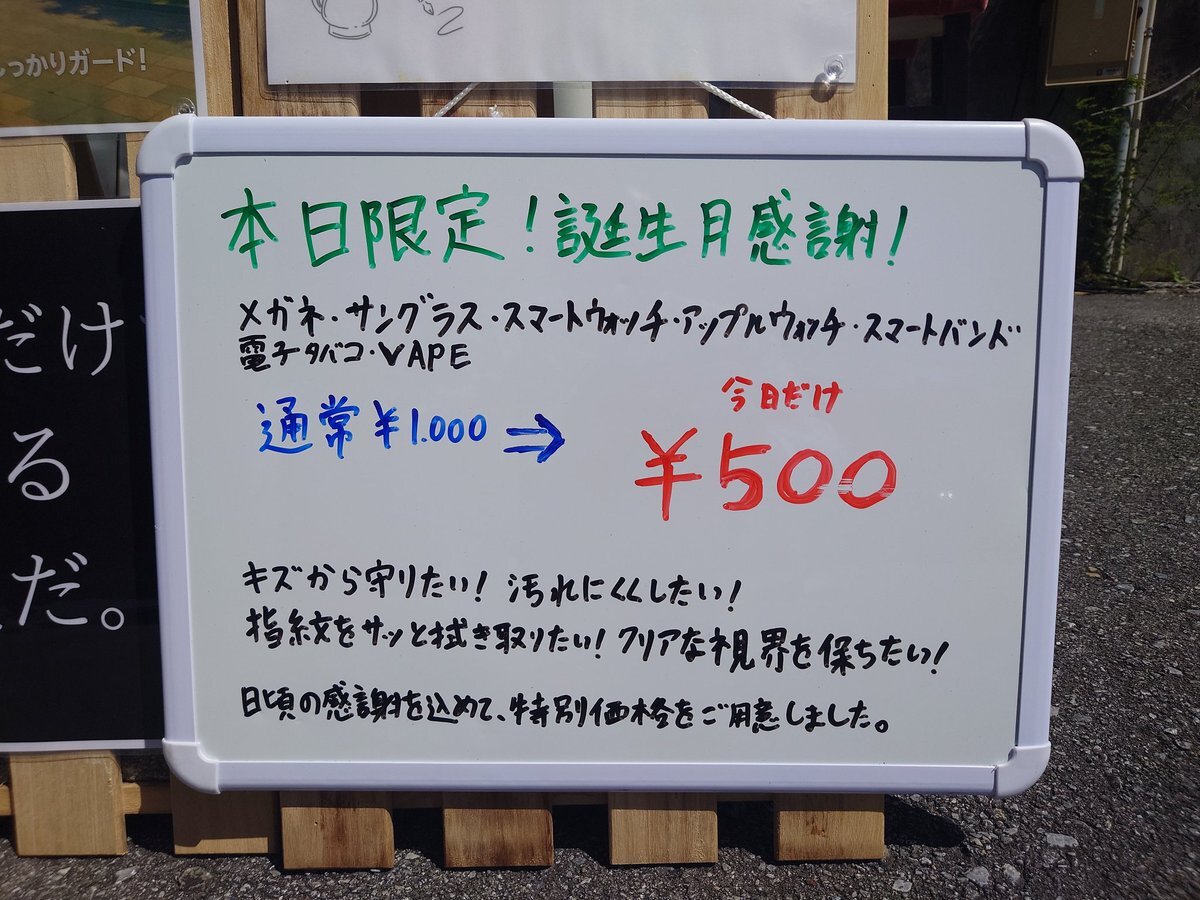 っかりガード!
だけ
る
だ。
本日限定!誕生月感謝!
メガネ・サングラス・スマートウォッチ・アップルウォッチ・スマートバンド
電子タバコ・VAPE
通常¥1.000⇒
今日だけ
¥500
キズから守りたい!汚れにくくしたい!
指紋をサッと拭き取りたい!クリアな視界を保ちたい!
日頃の感謝を込めて、特別価格をご用意しました。